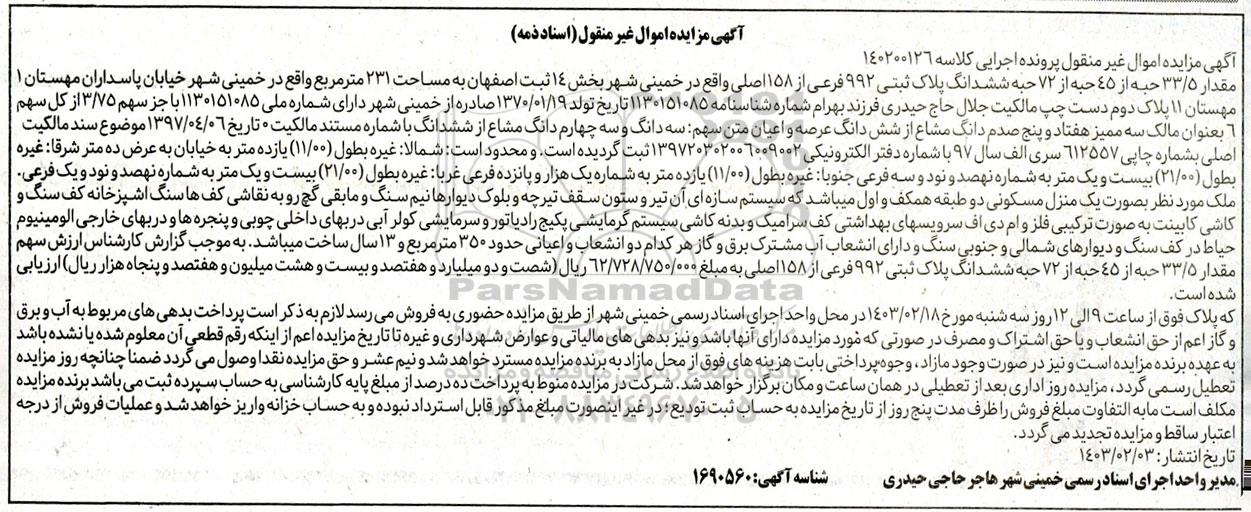 آگهی مزایده اموال غیر منقول (اسناد ذمه)
آگهی مزایده اموال غیر منقول پرونده اجرایی کلاسه ۱۴۰۲۰۰۱۲۶
مقدار ۳۳/۵ حبه از ۴۵ حبه از ۷۲ حبه ششدانگ پلاک ثبتی ۹۹۲ فرعی از ۱۵۸ اصلی واقع در خمینی شهر بخش ۱۴ ثبت اصفهان به مساحت ۲۳۱ مترمربع واقع در خمینی شهر خیابان پاسداران مهستان ۱
مهستان ۱۱ پلاک دوم دست چپ مالکیت جلال حاج حیدری فرزند بهرام شماره شناسنامه ۱۱۳۰۱۵۱۰۸۵ تاریخ تولد ۱۳۷۰/۰۱/۱۹ صادره از خمینی شهر دارای شماره ملی ۱۱۳۰۱۵۱۰۸۵ با جز سهم ۳/۷۵ از کل سهم
۶ بعنوان مالک سه ممیز هفتاد و پنج صدم دانگ مشاع از شش دانگ عرصه و اعیان متن سهم: سه دانگ و سه چهارم دانگ مشاع از ششدانگ با شماره مستند مالکیت ۰ تاریخ ۱۳۹۷/۰۴/۰۶ موضوع سند مالکیت
اصلی بشماره چاپی ۶۱۲۵۵۷ سری الف سال ۹۷ با شماره دفتر الکترونیکی ۱۳۹۷۲۰۳۰۲۰۰۶۰۰۹۰۰۲ ثبت گردیده است. و محدود است: شمالا: غیره بطول (۱۱/۰۰) یازده متر به خیابان به عرض ده متر شرقا: غیره
بطول (۲۱/۰۰) بیست و یک متر به شماره نهصد و نود و سه فرعی جنوبا: غیره بطول (۱۱/۰۰) یازده متر به شماره یک هزار و پانزده فرعی غربا: غیره بطول (۲۱/۰۰) بیست و یک متر به شماره نهصد و نود و یک فرعی.
ملک مورد نظر بصورت یک منزل مسکونی دو طبقه همکف و اول میباشد که سیستم سازه ای آن تیر و ستون سقف تیرچه و بلوک دیوارها نیم سنگ و مابقی گچ رو به نقاشی کف ها سنگ اشپزخانه کف سنگ و
کاشی کابینت به صورت ترکیبی فلز و ام دی اف سرویسهای بهداشتی کف سرامیک و بدنه کاشی سیستم گرمایشی پکیج رادیاتور و سرمایشی کولر آبی دربهای داخلی چوبی و پنجره ها و دربهای خارجی الومینیوم
حیاط در کف سنگ و دیوارهای شمالی و جنوبی سنگ و دارای انشعاب آب مشترک برق و گاز هر کدام دو انشعاب و اعیانی حدود ۳۵۰ مترمربع و ۱۳ سال ساخت میباشد. به موجب گزارش کارشناس ارزش سهم
مقدار ۳۳/۵ حبه از ۴۵ حبه از ۷۲ حبه ششدانگ پلاک ثبتی ۹۹۲ فرعی از ۱۵۸ اصلی به مبلغ ۶۲/۷۲۸/۷۵۰/۰۰۰ ریال (شصت و دو میلیارد و هفتصد و بیست و هشت میلیون و هفتصد و پنجاه هزار ریال) ارزیابی
شده است.
که پلاک فوق از ساعت ۹ الی ۱۲ روز سه شنبه مورخ ۱۴۰۳/۰۲/۱۸ در محل واحد اجرای اسناد رسمی خمینی شهر از طریق مزایده حضوری به فروش می رسد لازم به ذکر است پرداخت بدهی های مربوط به آب و برق
و گاز اعم از حق انشعاب و یا حق اشتراک و مصرف در صورتی که مورد مزایده دارای آنها باشد و نیز بدهی های مالیاتی و عوارض شهرداری و غیره تا تاریخ مزایده اعم از اینکه رقم قطعی آن معلوم شده یا نشده باشد
به عهده برنده مزایده است و نیز در صورت وجود مازاد، وجوه پرداختی بابت هزینه های فوق از محل مازاد به برنده مزایده مسترد خواهد شد و نیم عشر و حق مزایده نقدا وصول می گردد ضمنا چنانچه روز مزایده
تعطیل رسمی گردد، مزایده روز اداری بعد از تعطیلی در همان ساعت و مکان برگزار خواهد شد. شرکت در مزایده منوط به پرداخت ده درصد از مبلغ پایه کارشناسی به حساب سپرده ثبت می باشد برنده مزایده
مکلف است مابه التفاوت مبلغ فروش را ظرف مدت پنج روز از تاریخ مزایده به حساب ثبت تودیع؛ در غیر اینصورت مبلغ مذکور قابل استرداد نبوده و به حساب خزانه واریز خواهد شد و عملیات فروش از درجه
اعتبار ساقط و مزایده تجدید می گردد.
تاریخ انتشار: ۱۴۰۳/۰۲/۰۳
مدیر واحد اجرای اسناد رسمی خمینی شهر هاجر حاجی حیدری شناسه آگهی: ۱۶۹۰۵۶۰
ParsNamadData
پایگاه اطلاع رسانی مناقصه و مزایده
۰۲۱-۸۸۳۴۹۶۷۰-۵